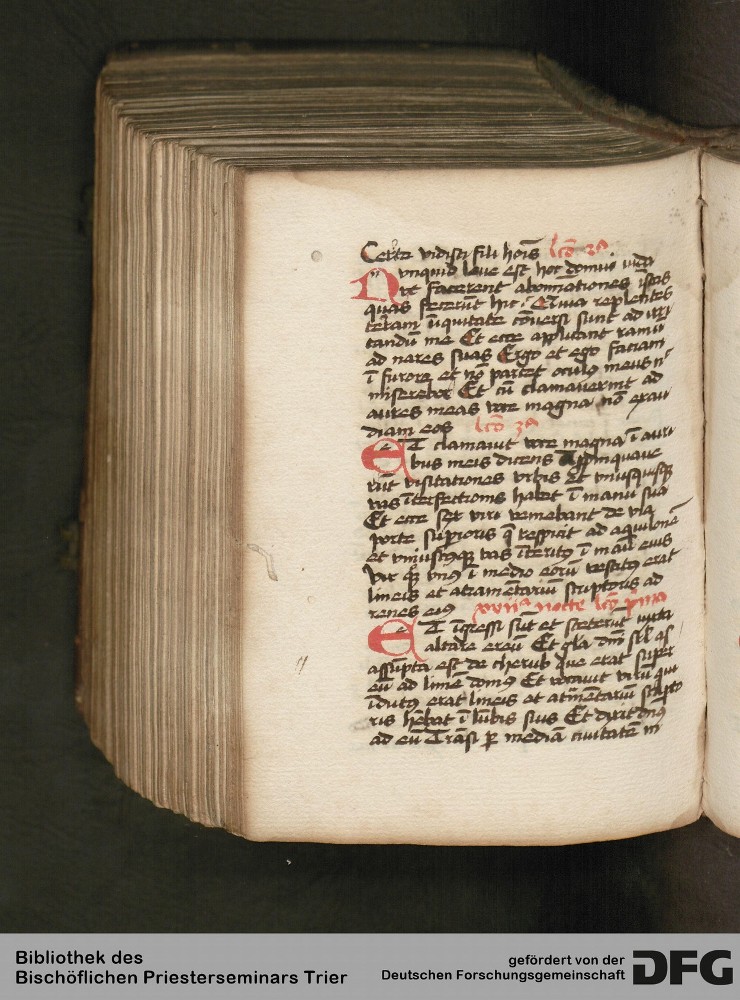 Certe vidisti fili hoīs lc̄o 2ᵃ
Nunquid leue est hoc domui iuda
vt facerent abomīationes istas
quas fecerūt hic Quia replentes
terram īiquitate cōuersi sunt ad irri
tandū me Et ecce applicant ramū
ad nares suas Ergo et ego faciam
ī furore et nō parcet oculus meus nec
miserebor Et cū clamauerint ad
aures meas voce magna nō exau
diam eos lc̄o 3ᵃ
ET clamauit voce magna ī auri
bus meis dicens Appīnquaue
rūt visitationes vrbis Et vnusquisqꝫ
vas īterfectionis habet ī manu sua
Et ecce sex viri veniebant de via
porte supioris q̄ respicit ad aquilonē
et vniuscuiꝰqꝫ vas īteritꝰ ī manu eius
Vir qꝫ vnꝰ ī medio eorū vestitꝰ erat
lineis et atramentariū scriptoris ad
renes eiꝰ xviiᵃ nocte lc̄o p̄ma
ET īgressi sūt et steterūt iuxta
altare ereū Et gl̄a dn̄i isrl̄
assūpta est de cherub que erat super
eū ad limē domꝰ Et vocauit virū qui
īdutꝰ erat lineis et atramentariū scripto
ris hēbat ī lūbis suis Et dixit dn̄s
ad eū Trāsi p mediā ciuitatē in
Bibliothek des
Bischöflichen Priesterseminars Trier
gefördert von der
Deutschen Forschungsgemeinschaft
DFG